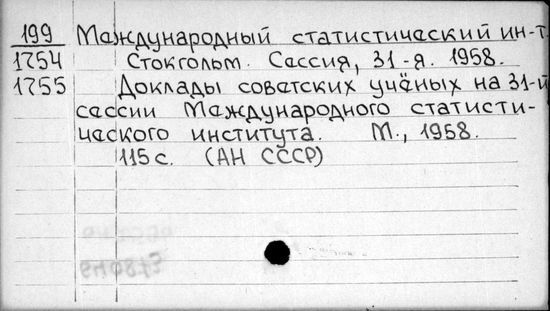 199 Международный статистический ин-т.
1754 Стокгольм. Сессия, 31-я. 1958.
1755 Доклады советских учёных на 31-й
сессии Международного статисти-
ческого института. М., 1958.
115 с. (АН СССР)